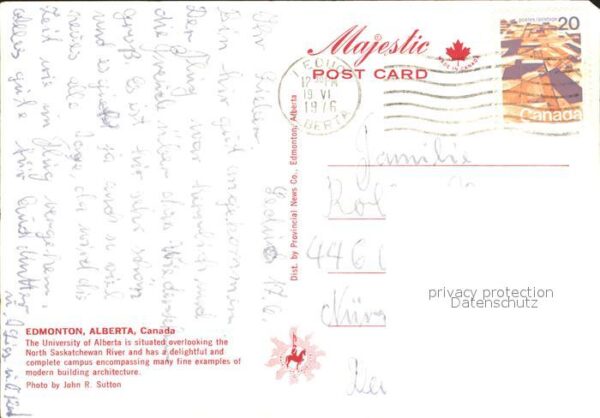 Majestic
MADE IN CANADA
POST CARD
postes/postage 20
Canada
LEDUC
19 VI
1976
ALBERTA
Dist. by Provincial News Co., Edmonton, Alberta
Ihr Lieben
Leduc 17.6.
Bin hier gut angekommen
Der Flug war herrlich und
die Freude über das Wiederseh
groß. Es ist hier sehr schön
und es gibt ja auch so viel
neues alle Tage, da wird die
Zeit wie im Flug vergehen.
alles gute für
Familie
4460
privacy protection
Datenschutz
EDMONTON, ALBERTA, Canada
The University of Alberta is situated overlooking the
North Saskatchewan River and has a delightful and
complete campus encompassing many fine examples of
modern building architecture.
Photo by John R. Sutton